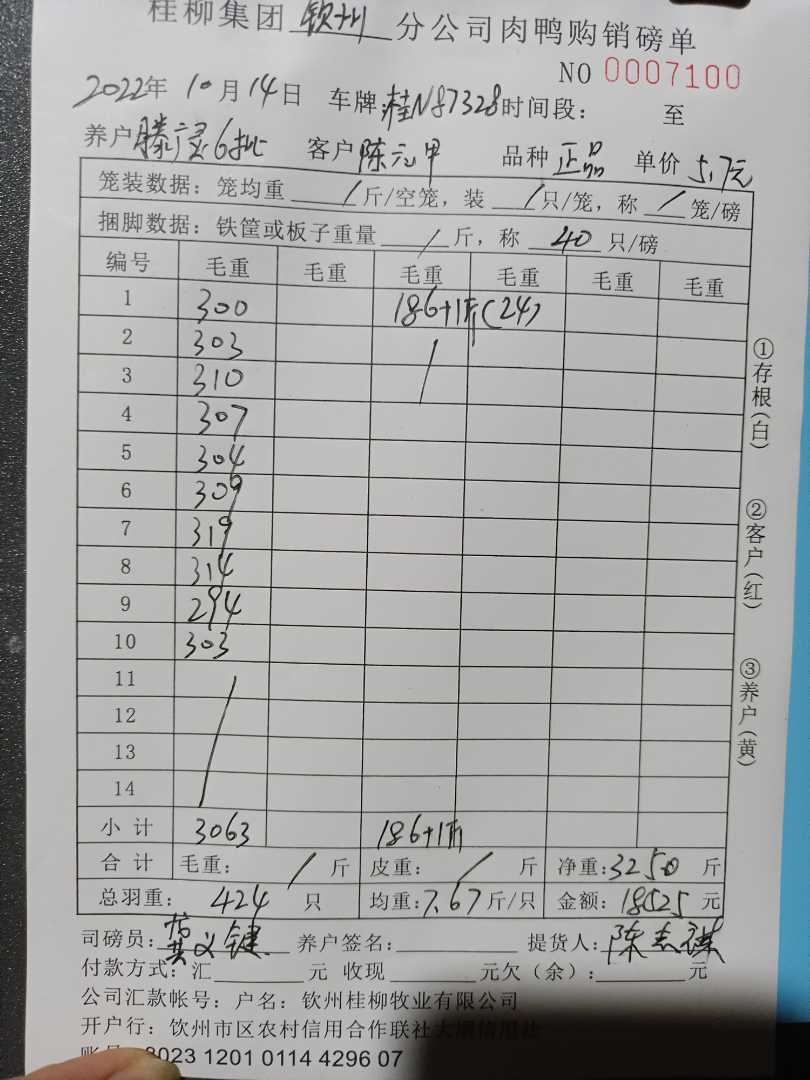 桂柳集团 钦州 分公司肉鸭购销磅单
NO 0007100
2022年 10月 14日 车牌:桂N87328 时间段: 至
养户 滕广灵6批 客户 陈元甲 品种 正品 单价 5.7元
笼装数据: 笼均重 / 斤/空笼, 装 / 只/笼, 称 / 笼/磅
捆脚数据: 铁筐或板子重量 / 斤, 称 40 只/磅
编号 毛重 毛重 毛重 毛重 毛重 毛重
1 300 186+1斤(24)
2 303
3 310
4 307
5 304
6 309
7 319
8 314
9 294
10 303
11
12
13
14
小计 3063 186+1斤
合计 毛重: / 斤 皮重: / 斤 净重:3250 斤
总羽重: 424 只 均重:7.67斤/只 金额: 18525 元
司磅员: 义键 养户签名: 提货人: 陈志谋
付款方式: 汇 元 收现 元欠(余): 元
公司汇款帐号: 户名: 钦州桂柳牧业有限公司
开户行: 钦州市区农村信用合作联社大垌信用社
账号: 8023 1201 0114 4296 07
①存根(白)
②客户(红)
③养户(黄)